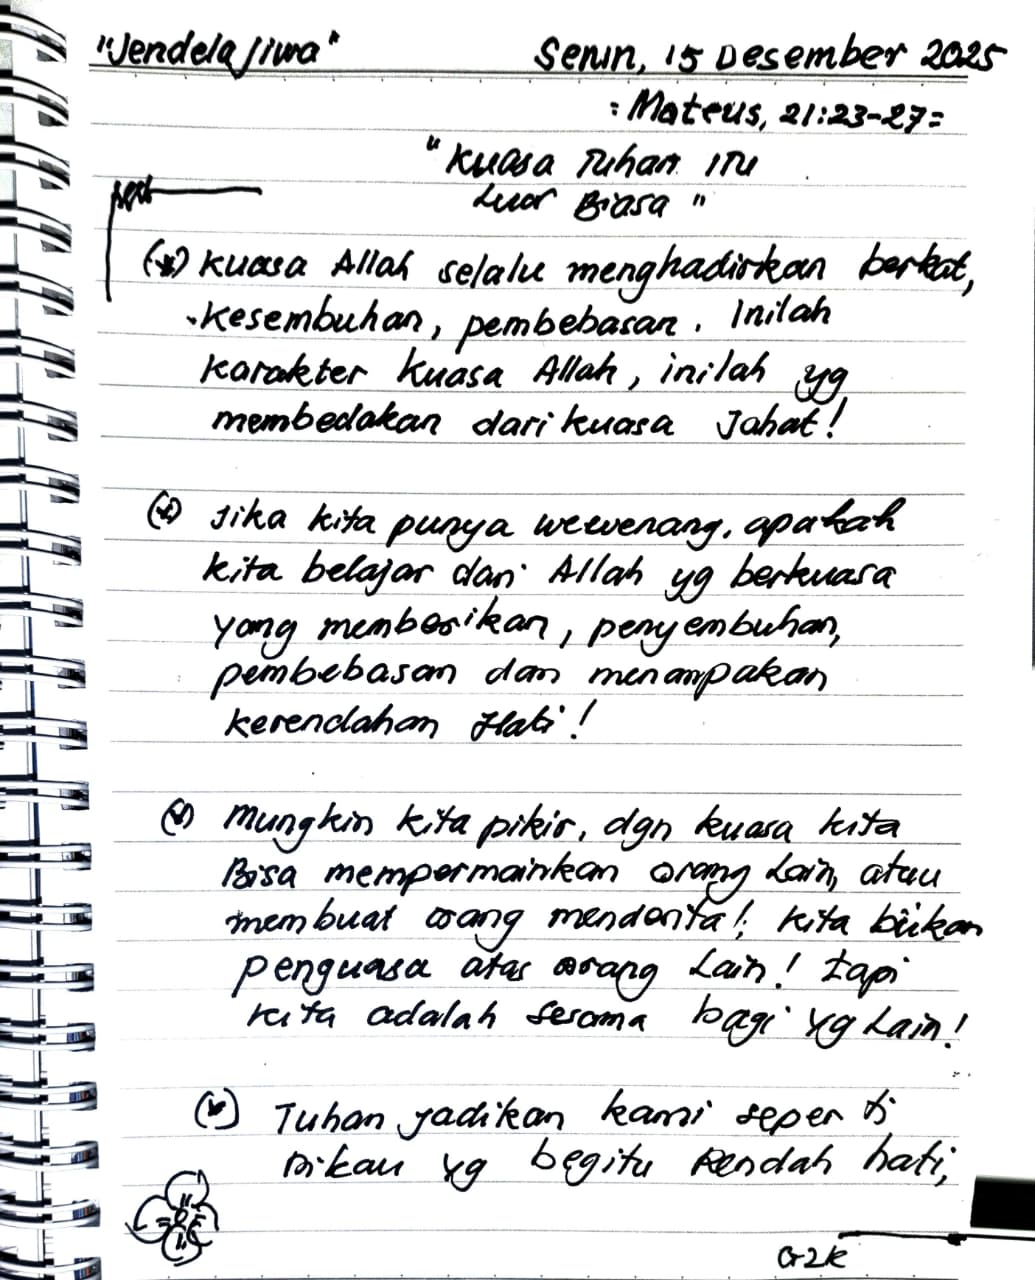 "Jendela Jiwa" Senin, 15 Desember 2025
: Mateus, 21:23-27=
"Kuasa Tuhan ITU
Luar Biasa"
(*) Kuasa Allah selalu menghadirkan berkat,
kesembuhan, pembebasan. Inilah
karakter kuasa Allah, inilah yg
membedakan dari kuasa Jahat!
(*) Jika kita punya wewenang, apakah
kita belajar dari Allah yg berkuasa
yang memberikan, penyembuhan,
pembebasan dan menampakan
kerendahan Hati!
(*) Mungkin kita pikir, dgn kuasa kita
Bisa mempermainkan orang Lain, atau
membuat orang menderita!, kita bukan
penguasa atas orang Lain! tapi
kita adalah sesama bagi yg Lain!
(*) Tuhan jadikan kami seperti
Dikau yg begitu Rendah hati,
G2k